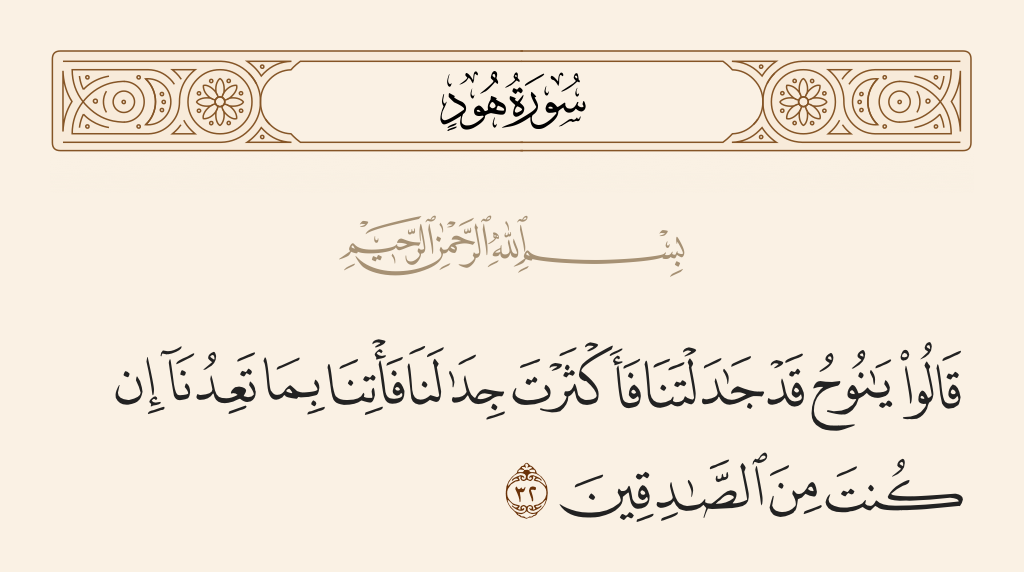 سُورَةُ هُودٍ
بِسْمِ ٱللَّهِ ٱلرَّحْمَٰنِ ٱلرَّحِيمِ
قَالُوا۟ يَـٰنُوحُ قَدْ جَـٰدَلْتَنَا فَأَكْثَرْتَ جِدَٰلَنَا فَأْتِنَا بِمَا تَعِدُنَآ إِن
كُنتَ مِنَ ٱلصَّـٰدِقِينَ ٣٢